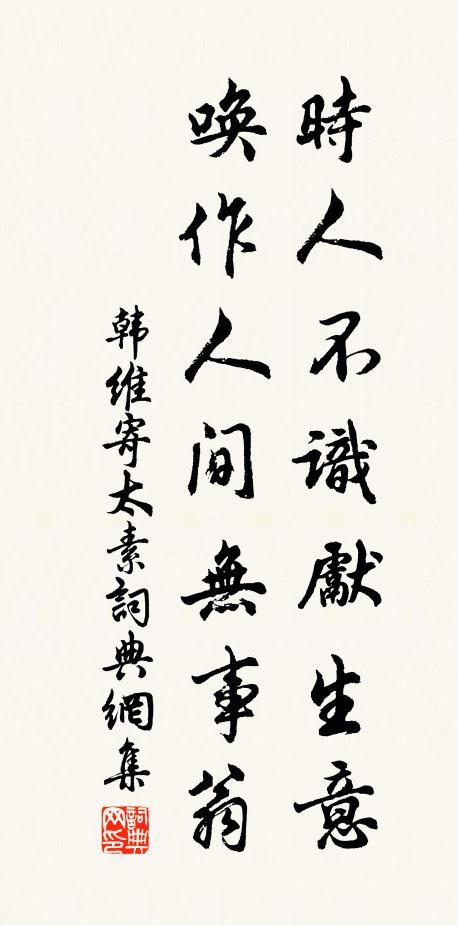 時人不識獻生意
喚作人間無事翁
韩維寄太素詞典網集
詞典网印